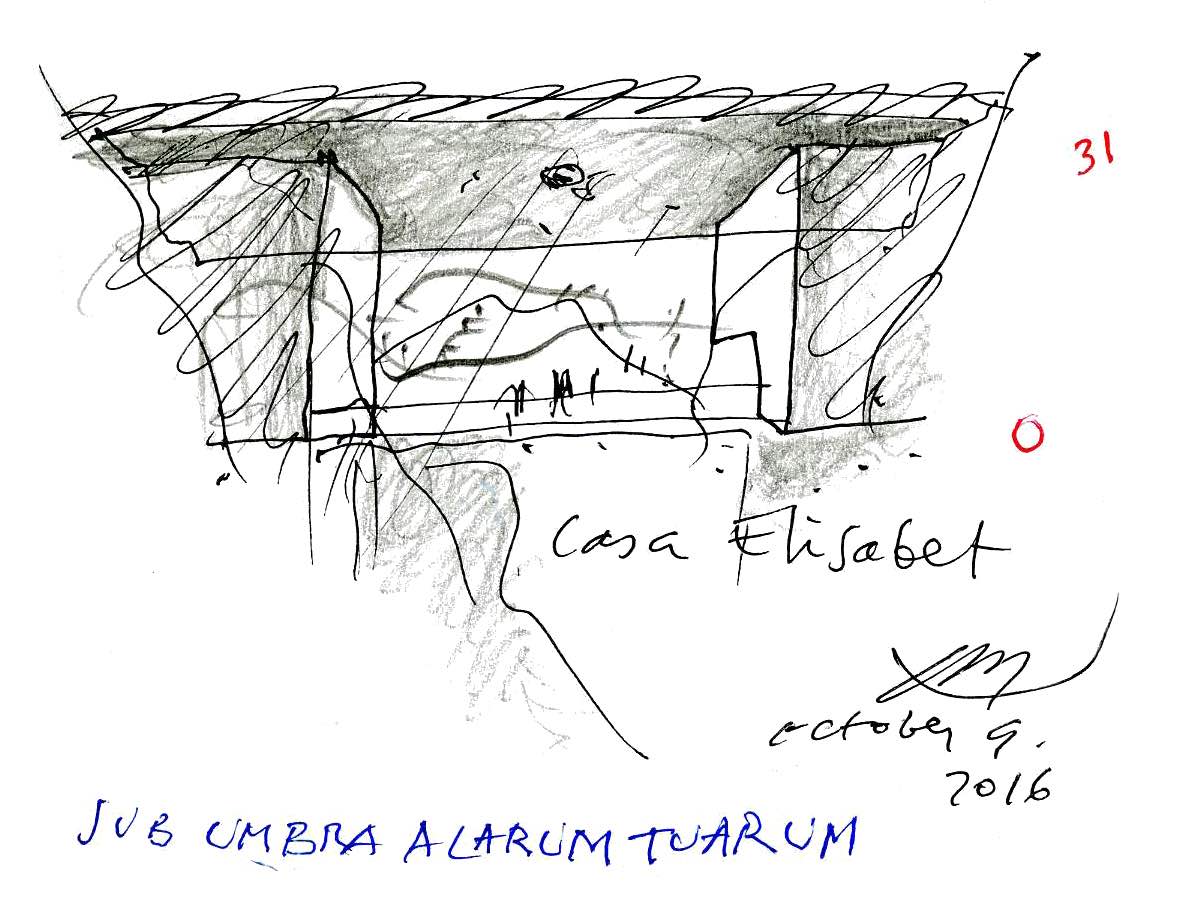 31
O
Casa Elisabet
october 9.
2016
SUB UMBRA ALARUM TUARUM